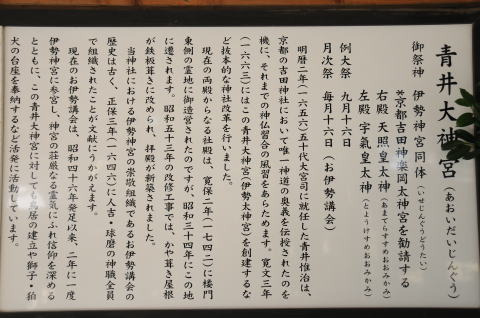 青井大神宮（あおいだいじんぐう）
御祭神　伊勢神宮同体（いせじんぐうどうたい）
※京都吉田神楽岡太神宮を勧請する
右殿　天照皇太神（あまてらすおおみかみ）
左殿　字氣皇太神（とようけすめおおみかみ）
例大祭　九月十六日
月次祭　毎月十六日（お伊勢講会）
明暦二年（一六五六）五十代大宮司に就任した青井惟治は、
京都の吉田神社において唯一神道の奥義を伝授されたのを
機に、それまでの神仏習合の風習をあらためます。寛文三年
（一六六三）にはこの青井大神宮（伊勢太神宮）を創建するな
ど抜本的な神社改革を行いました。
現在の両殿からなる社殿は、寛保二年（一七四二）に楼門
東側の霊地に御造営されたのですが、昭和三十四年にこの地
に遷されます。昭和五十三年の改修工事では、かや葺き屋根
が鉄板葺きに改められ、拝殿が新築されました。
当神社における伊勢神宮の崇敬組織であるお伊勢講会の
歴史は古く、正保三年（一六四六）に人吉・球磨の神職全員
で組織されたことが文献にうかがえます。
現在のお伊勢講会は、昭和四十六年発足以来、二年に一度
伊勢神宮に参宮し、神宮の荘厳なる霊気にふれ信仰を深める
とともに、この青井大神宮に対しても鳥居の建立や獅子・狛
犬の台座を奉納するなど活発に活動しています。